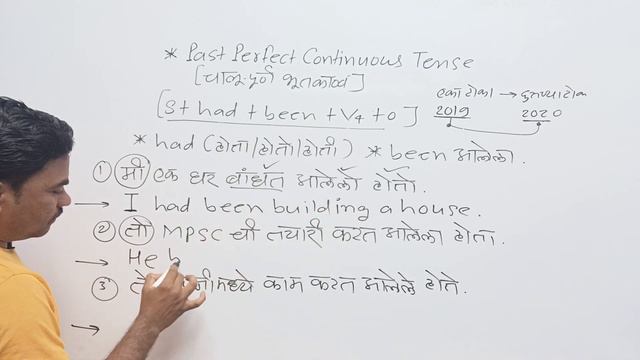 * Past Perfect Continuous Tense
[चालू पूर्ण भूतकाळ]
[S + had + been + V4 + o]
एका टोका → दुसऱ्या टोक
2019 2020
* had (होता/होतो/होती) * been आलेला.
① मी एक घर बांधत आलेलो होतो.
→ I had been building a house.
② तो MPSC ची तयारी करत आलेला होता.
→ He h
③ काम करत आलेले होते.
→